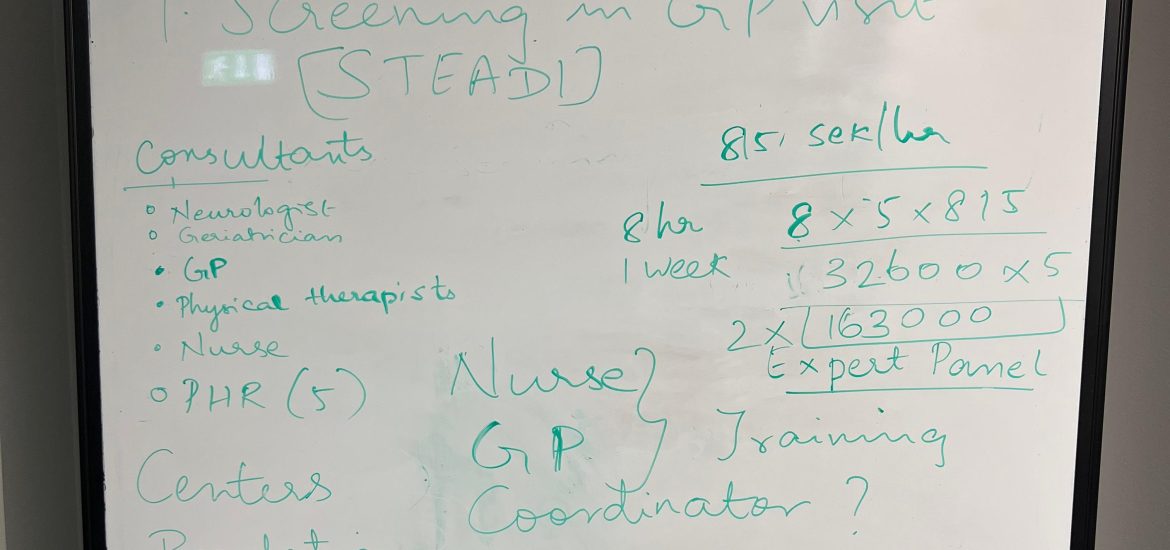 1. Screening in GP visit
[STEADI]
Consultants
Neurologist
Geriatrician
GP
Physical therapists
Nurse
PHR (5)
Centers
815, sek/hr
8 hr
1 week
8 x 5 x 815
32600 x 5
2 x 163000
Expert Panel
Nurse
GP
Training
Coordinator ?